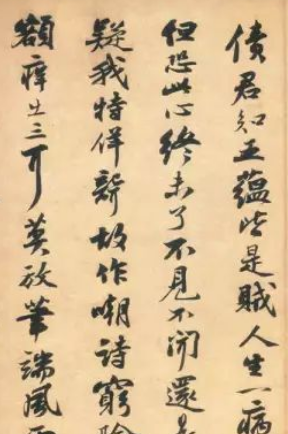 債君知五蘊皆是賊人生一病
但恐此心終未了不見不聞還是
疑我特佯聾故作嘲詩窮險
額癢出三耳莫放筆端風雨